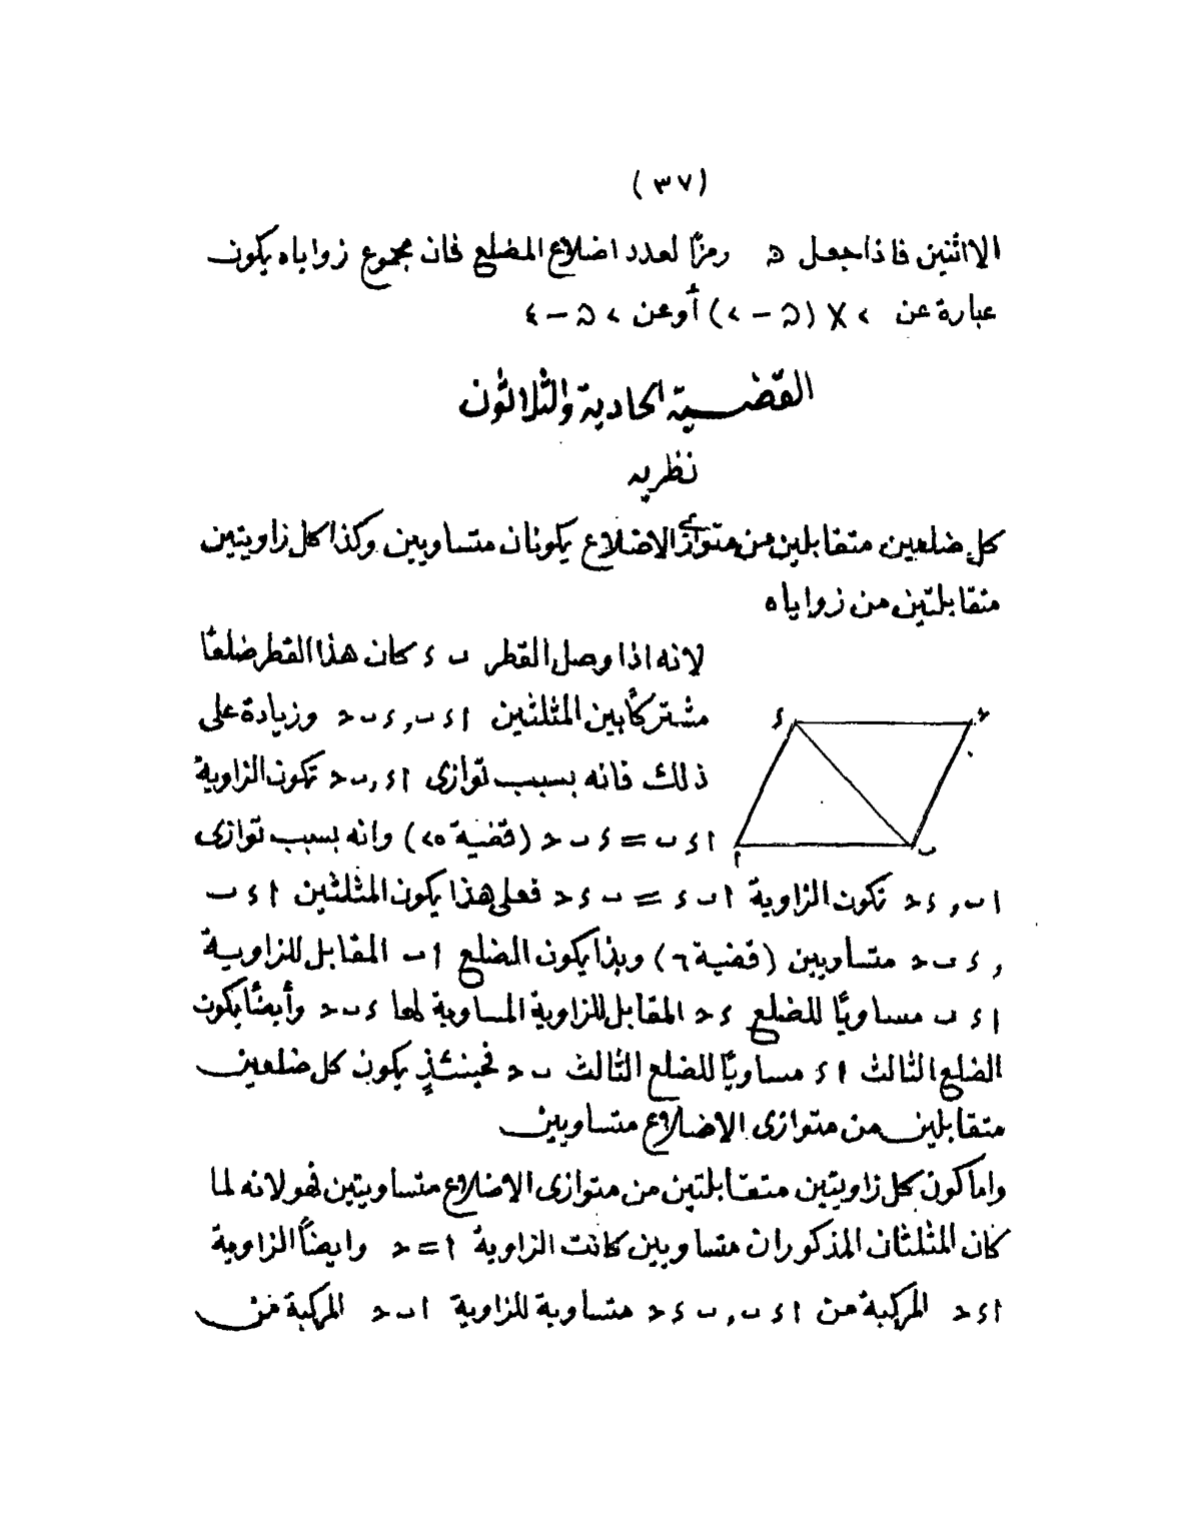 (٣٧)
الا اثنين فاذا جعل ه رمزًا لعدد اضلاع المضلع فان مجموع زواياه يكون
عبارة عن ٢ X (ه - ٢) أوعن ٢ ه - ٤
القضية الحادية والثلاثون
نظرية
كل ضلعين متقابلين من متوازى الاضلاع يكونان متساويين وكذا كل زاويتين
متقابلتين من زواياه
لانه اذا وصل القطر ب ء كان هذا القطر ضلعًا
مشتركًا بين المثلثين ا ء ب , ء ب ح وزيادة على
ذلك فانه بسبب توازى ا ء , ب ح تكون الزاوية
ا ء ب = ء ب ح (قضية ٢٥) وانه بسبب توازى
ا ب , ء ح تكون الزاوية ا ب ء = ب ء ح فعلى هذا يكون المثلثين ا ء ب
, ء ب ح متساويين (قضية ٦) وبذا يكون الضلع ا ب المقابل للزاوية
ا ء ب مساويًا للضلع ء ح المقابل للزاوية المساوية لها ء ب ح وأيضًا يكون
الضلع الثالث ا ء مساويًا للضلع الثالث ب ح فحينئذٍ يكون كل ضلعين
متقابلين من متوازى الاضلاع متساويين
واما كون كل زاويتين متقابلتين من متوازى الاضلاع متساويتين فهو لانه لما
كان المثلثان المذكوران متساويين كانت الزاوية ا = ح وايضًا الزاوية
ا ء ح المركبة من ا ء ب , ب ء ح متساوية للزاوية ا ب ح المركبة من
ء
ح
ا
ب